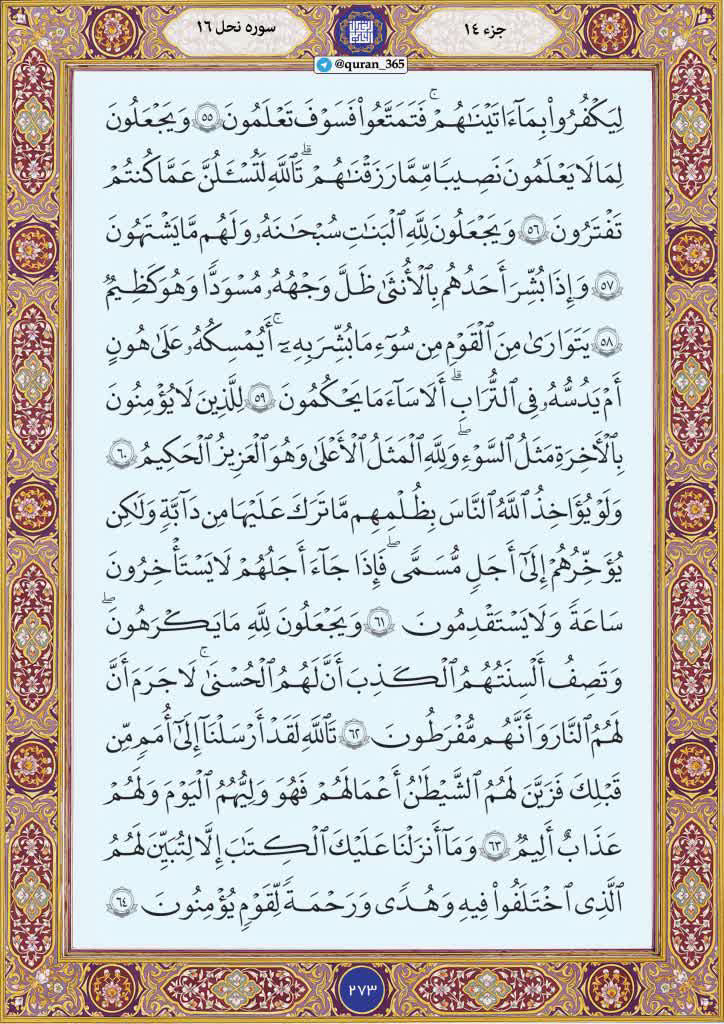 جزء ١٤
سوره نحل ١٦
@quran_365
لِيَكْفُرُوا۟ بِمَآ ءَاتَيْنَٰهُمْ ۚ فَتَمَتَّعُوا۟ فَسَوْفَ تَعْلَمُونَ ٥٥ وَيَجْعَلُونَ
لِمَا لَا يَعْلَمُونَ نَصِيبًا مِّمَّا رَزَقْنَٰهُمْ ۗ تَٱللَّهِ لَتُسْـَٔلُنَّ عَمَّا كُنتُمْ
تَفْتَرُونَ ٥٦ وَيَجْعَلُونَ لِلَّهِ ٱلْبَنَٰتِ سُبْحَٰنَهُۥ وَلَهُم مَّا يَشْتَهُونَ
٥٧ وَإِذَا بُشِّرَ أَحَدُهُم بِٱلْأُنثَىٰ ظَلَّ وَجْهُهُۥ مُسْوَدًّا وَهُوَ كَظِيمٌ
٥٨ يَتَوَارَىٰ مِنَ ٱلْقَوْمِ مِن سُوٓءِ مَا بُشِّرَ بِهِۦٓ ۚ أَيُمْسِكُهُۥ عَلَىٰ هُونٍ
أَمْ يَدُسُّهُۥ فِى ٱلتُّرَابِ ۗ أَلَا سَآءَ مَا يَحْكُمُونَ ٥٩ لِلَّذِينَ لَا يُؤْمِنُونَ
بِٱلْءَاخِرَةِ مَثَلُ ٱلسَّوْءِ ۖ وَلِلَّهِ ٱلْمَثَلُ ٱلْأَعْلَىٰ وَهُوَ ٱلْعَزِيزُ ٱلْحَكِيمُ ٦٠
وَلَوْ يُؤَاخِذُ ٱللَّهُ ٱلنَّاسَ بِظُلْمِهِم مَّا تَرَكَ عَلَيْهَا مِن دَآبَّةٍ وَلَٰكِن
يُؤَخِّرُهُمْ إِلَىٰٓ أَجَلٍ مُّسَمًّى ۖ فَإِذَا جَآءَ أَجَلُهُمْ لَا يَسْتَـْٔخِرُونَ
سَاعَةً وَلَا يَسْتَقْدِمُونَ ٦١ وَيَجْعَلُونَ لِلَّهِ مَا يَكْرَهُونَ ۖ
وَتَصِفُ أَلْسِنَتُهُمُ ٱلْكَذِبَ أَنَّ لَهُمُ ٱلْحُسْنَىٰ ۚ لَا جَرَمَ أَنَّ
لَهُمُ ٱلنَّارَ وَأَنَّهُم مُّفْرَطُونَ ٦٢ تَٱللَّهِ لَقَدْ أَرْسَلْنَآ إِلَىٰٓ أُمَمٍ مِّن
قَبْلِكَ فَزَيَّنَ لَهُمُ ٱلشَّيْطَٰنُ أَعْمَٰلَهُمْ فَهُوَ وَلِيُّهُمُ ٱلْيَوْمَ وَلَهُمْ
عَذَابٌ أَلِيمٌ ٦٣ وَمَآ أَنزَلْنَا عَلَيْكَ ٱلْكِتَٰبَ إِلَّا لِتُبَيِّنَ لَهُمُ
ٱلَّذِى ٱخْتَلَفُوا۟ فِيهِ وَهُدًى وَرَحْمَةً لِّقَوْمٍ يُؤْمِنُونَ ٦٤
٢٧٣